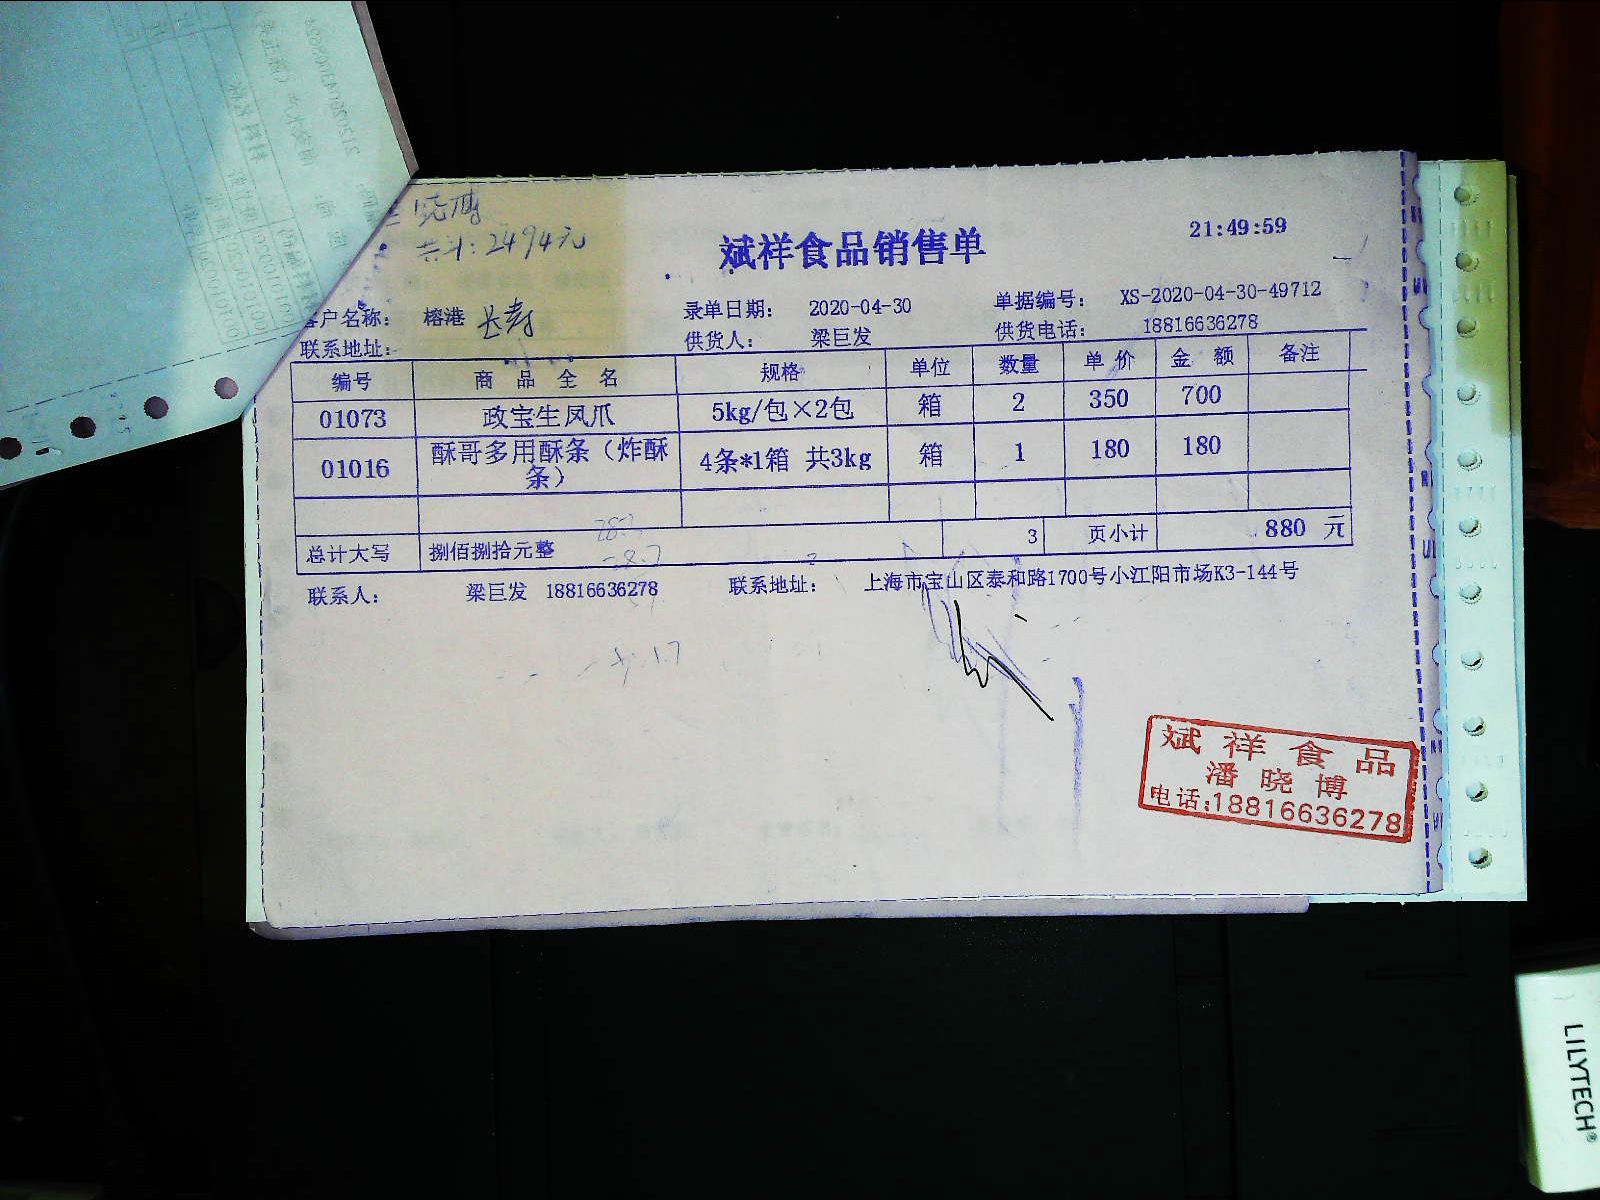 共计：2494元
斌祥食品销售单
21:49:59
客户名称： 榕港 长寿
录单日期： 2020-04-30
单据编号： XS-2020-04-30-49712
联系地址：
供货人： 梁巨发
供货电话： 18816636278
编号 商品全名 规格 单位 数量 单价 金额 备注
01073 政宝生凤爪 5kg/包×2包 箱 2 350 700
01016 酥哥多用酥条（炸酥
条） 4条*1箱 共3kg 箱 1 180 180
总计大写 捌佰捌拾元整 3 页小计 880 元
联系人： 梁巨发 18816636278 联系地址： 上海市宝山区泰和路1700号小江阳市场K3-144号
斌祥食品
潘晓博
电话:18816636278
LILYTECH®